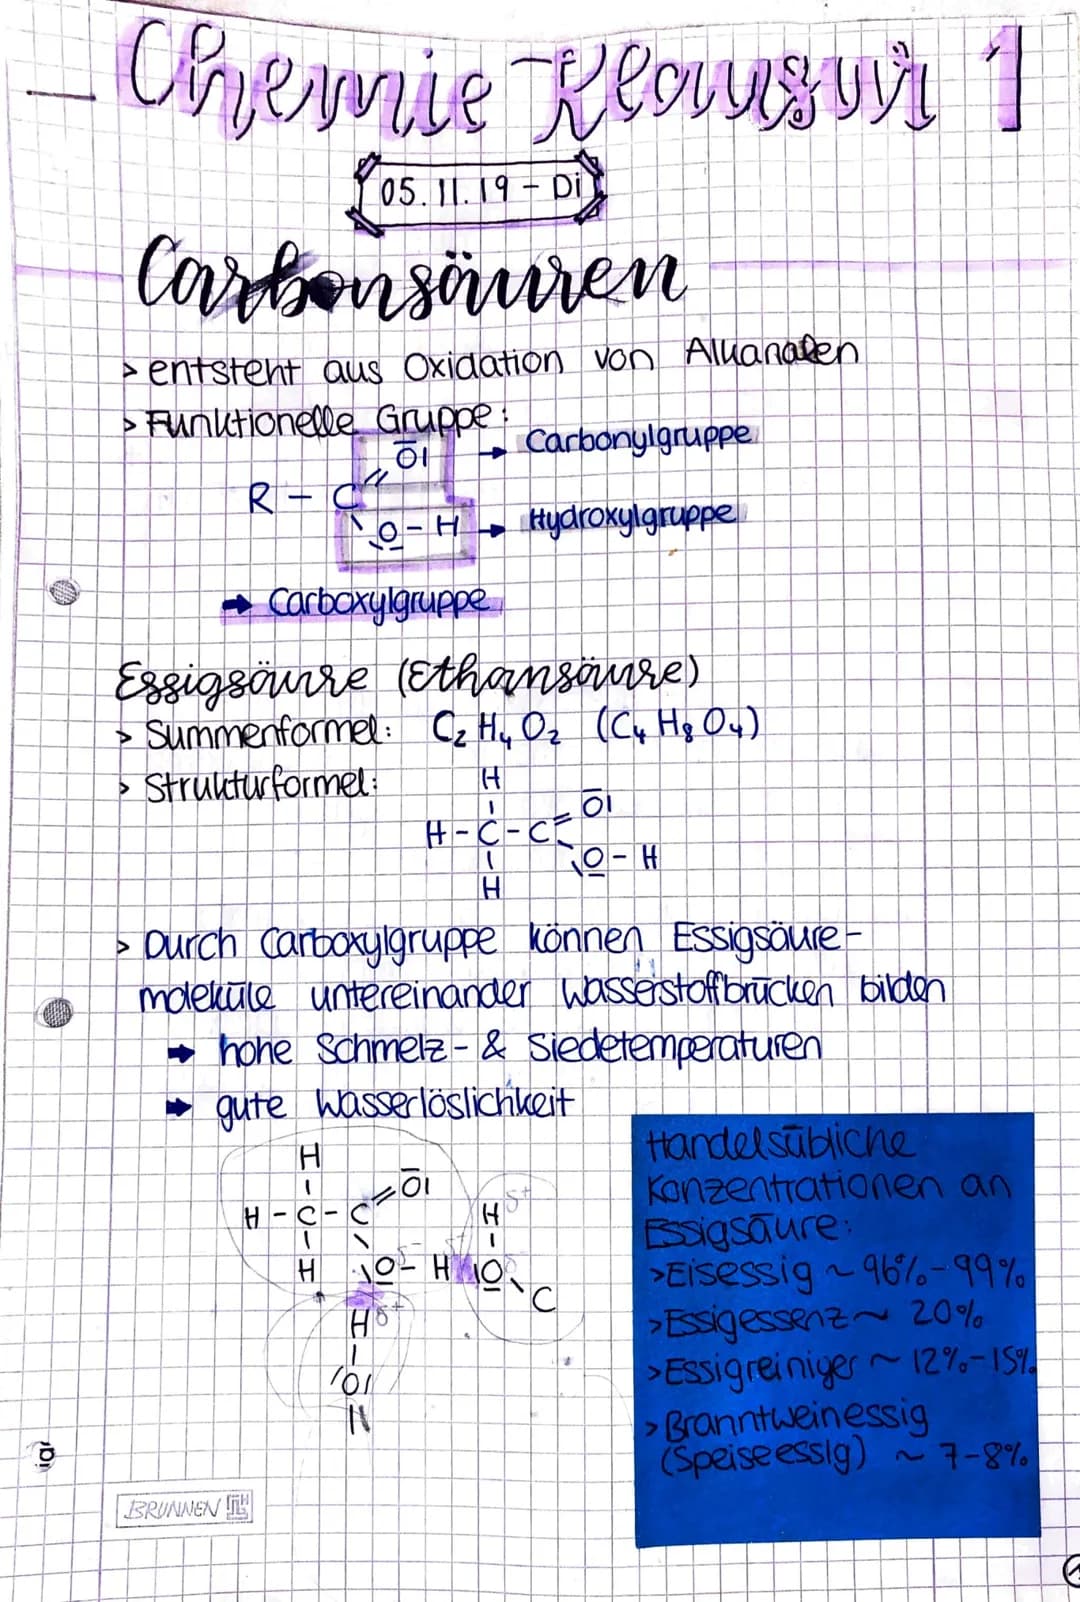 Chemie-Klausur 1
05.11.19 - Di
Carbonsäuren
> entsteht aus Oxidation von Alkanalen
> Funktionelle Gruppe:
O → Carbonylgruppe
R - C
O - H → Hydroxylgruppe
→ Carboxylgruppe
Essigsäure (Ethansäure)
> Summenformel: C₂H₄O₂ (C₄H₈O₄)
> Strukturformel:
H
O
H-C-C
O-H
H
> Durch Carboxylgruppe können Essigsäure-
moleküle untereinander Wasserstoffbrücken bilden
→ hohe Schmelz- & Siedetemperaturen
→ gute Wasserlöslichkeit
H
O
H-C-C H δ+
H O - H O
C
H δ+
O
H
Handelsübliche
Konzentrationen an
Essigsäure:
>Eisessig ~ 96%-99%
>Essigessenz ~ 20%
>Essigreiniger ~ 12%-15%
>Branntweinessig
(Speiseessig) ~ 7-8%
BRUNNEN